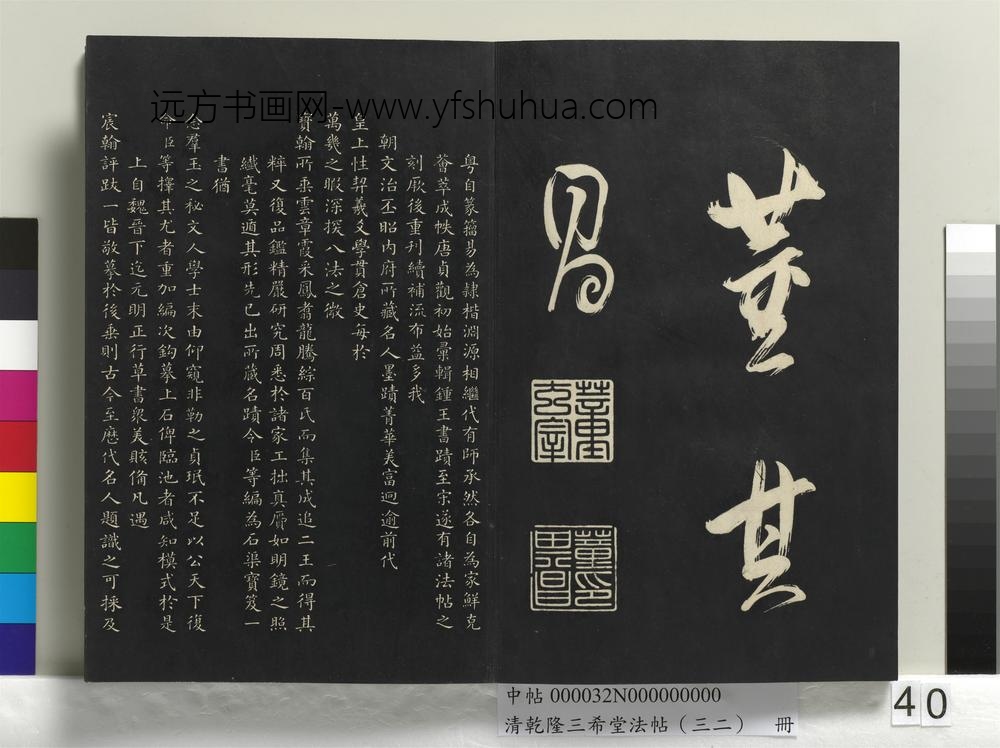 远方书画网-www.yfshuhua.com
董其
昌
粤自篆籀易為隸楷淵源相繼代有師承然各自為家鮮克
薈萃成帙唐貞觀初始彙輯鍾王書蹟至宋遂有諸法帖之
刻厥後重刊續補流布益多我
朝文治丕昭内府所藏名人墨蹟菁華美富迥逾前代
皇上性契羲文學貫倉史每於
萬幾之暇深探八法之微
寶翰所垂雲章霞采鳳翥龍騰綜百氏而集其成追二王而得其
粹又復品鑑精嚴研究周悉於諸家工拙真贋如明鏡之照
纖毫莫遁其形先已出所藏名蹟令臣等編為石渠寶笈一
書猶
念羣玉之秘文人學士末由仰窺非勒之貞珉不足以公天下復
命臣等擇其尤者重加編次鈎摹上石俾臨池者咸知模式於是
上自魏晉下迄元明正行草書衆美賅備凡遇
宸翰評跋一皆敬摹於後垂則古今至歷代名人題識之可採及
中帖 000032N000000000
清乾隆三希堂法帖（三二） 冊
40